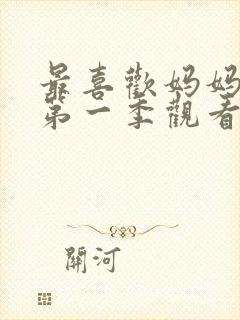 最喜歡媽媽
第一季觀看
關河